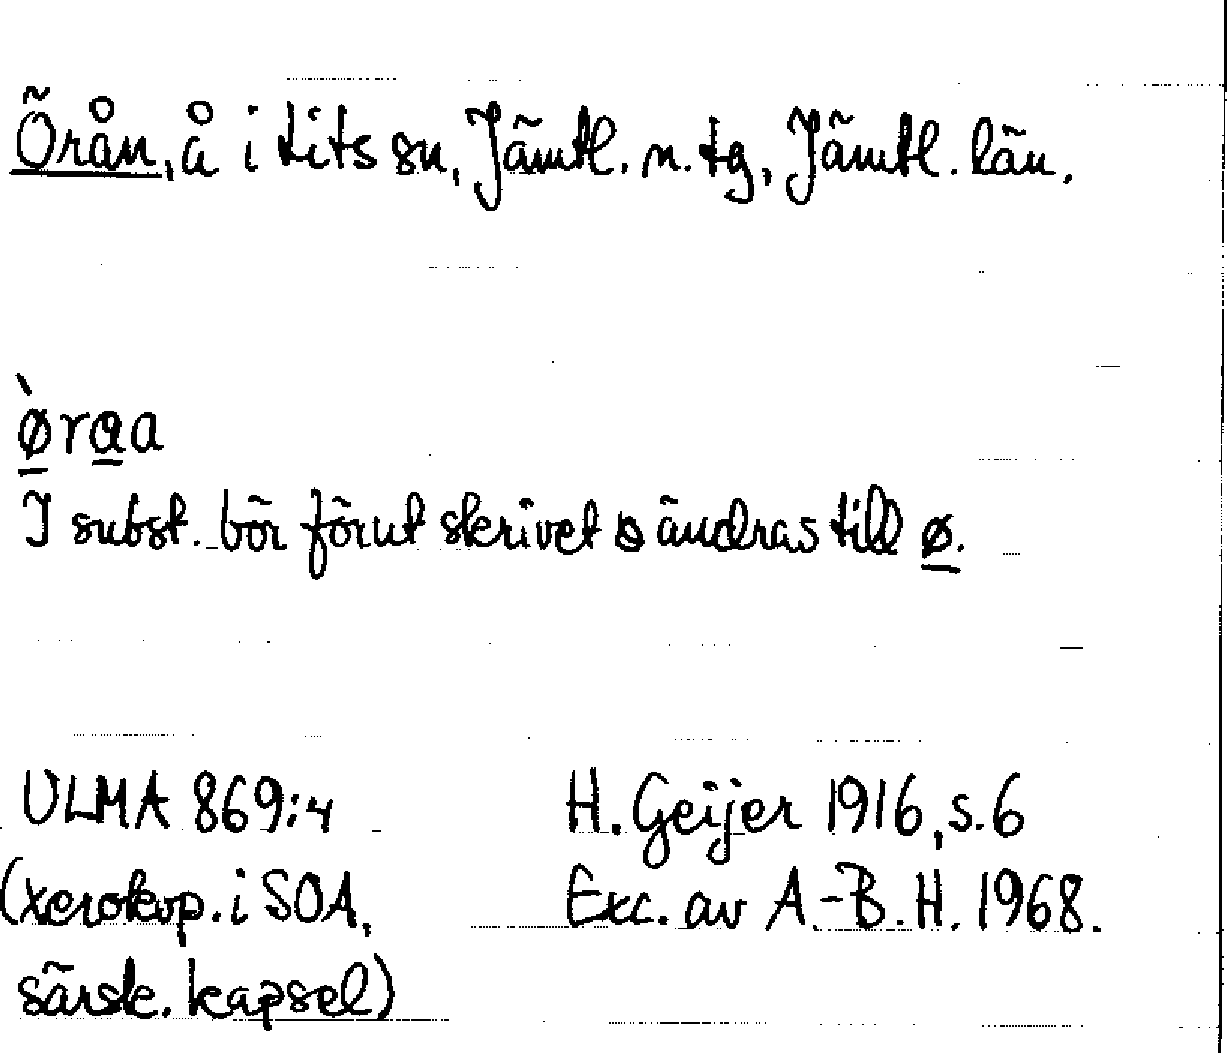 Örån, å i Lits sn, Jämtl. n. tg, Jämtl. län.
ø̀raa
I subst. bör förut skrivet ändras till ø.
ULMA 869:4
H. Geijer 1916, s. 6
(xerokop. i SOA,
Exc. av A.-B. H. 1968.
särsk. kapsel)